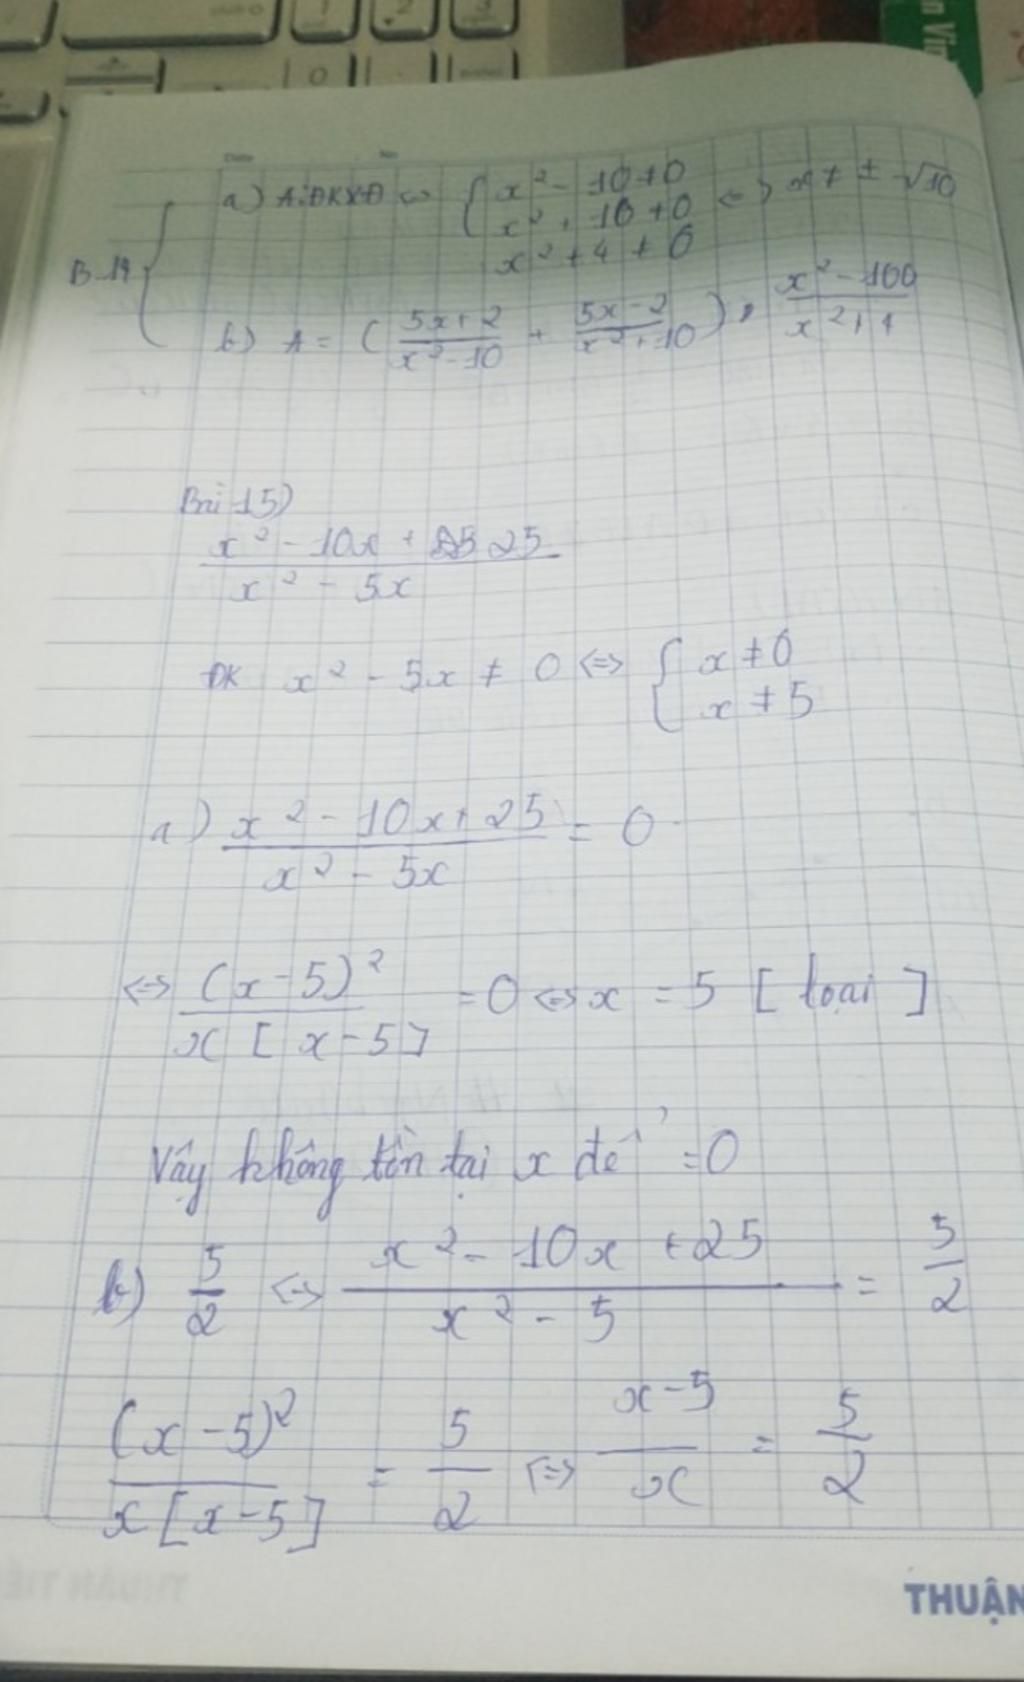 a) A. ĐKXĐ <=> { x² - 10 ≠ 0 <=> x ≠ ± √10
x² + 10 ≠ 0
x² + 4 ≠ 0
B.14
b) A = ( (5x+2)/(x²-10) + (5x-2)/(x²+10) ) . (x²-100)/(x²+4)
Bài 15)
x² - 10x + 25
x² - 5x
ĐK x² - 5x ≠ 0 <=> { x ≠ 0
x ≠ 5
a) (x² - 10x + 25)/(x² - 5x) = 0
<=> (x-5)²/(x[x-5]) = 0 <=> x = 5 [loại]
Vây không tồn tại x để = 0
b) 5/2 <=> (x² - 10x + 25)/(x² - 5) = 5/2
(x-5)²/(x[x-5]) = 5/2 <=> (x-5)/x = 5/2
THUẬN